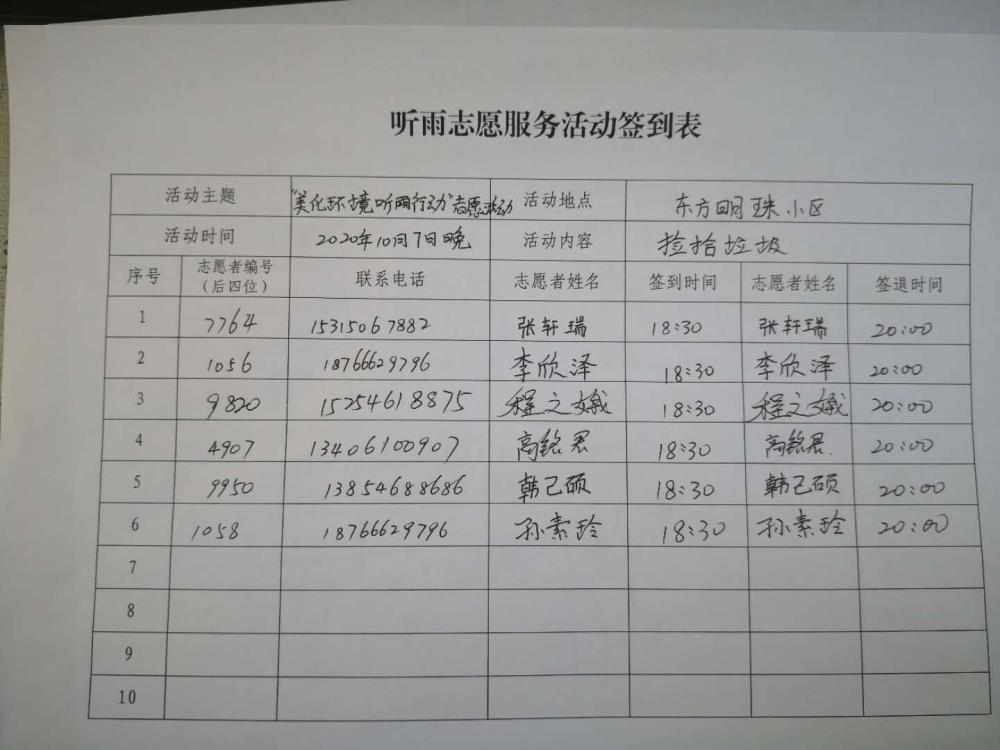 听雨志愿服务活动签到表
活动主题 "美化环境听雨行动"志愿活动 活动地点 东方明珠小区
活动时间 2020年10月7日晚 活动内容 捡拾垃圾
序号 志愿者编号（后四位） 联系电话 志愿者姓名 签到时间 志愿者姓名 签退时间
1 7764 15315067882 张轩瑞 18:30 张轩瑞 20:00
2 1056 18766629796 李欣泽 18:30 李欣泽 20:00
3 9820 15254618875 程之娥 18:30 程之娥 20:00
4 4907 13406100907 高铭君 18:30 高铭君 20:00
5 9950 13854688686 韩己硕 18:30 韩己硕 20:00
6 1058 18766629796 孙素玲 18:30 孙素玲 20:00
7
8
9
10